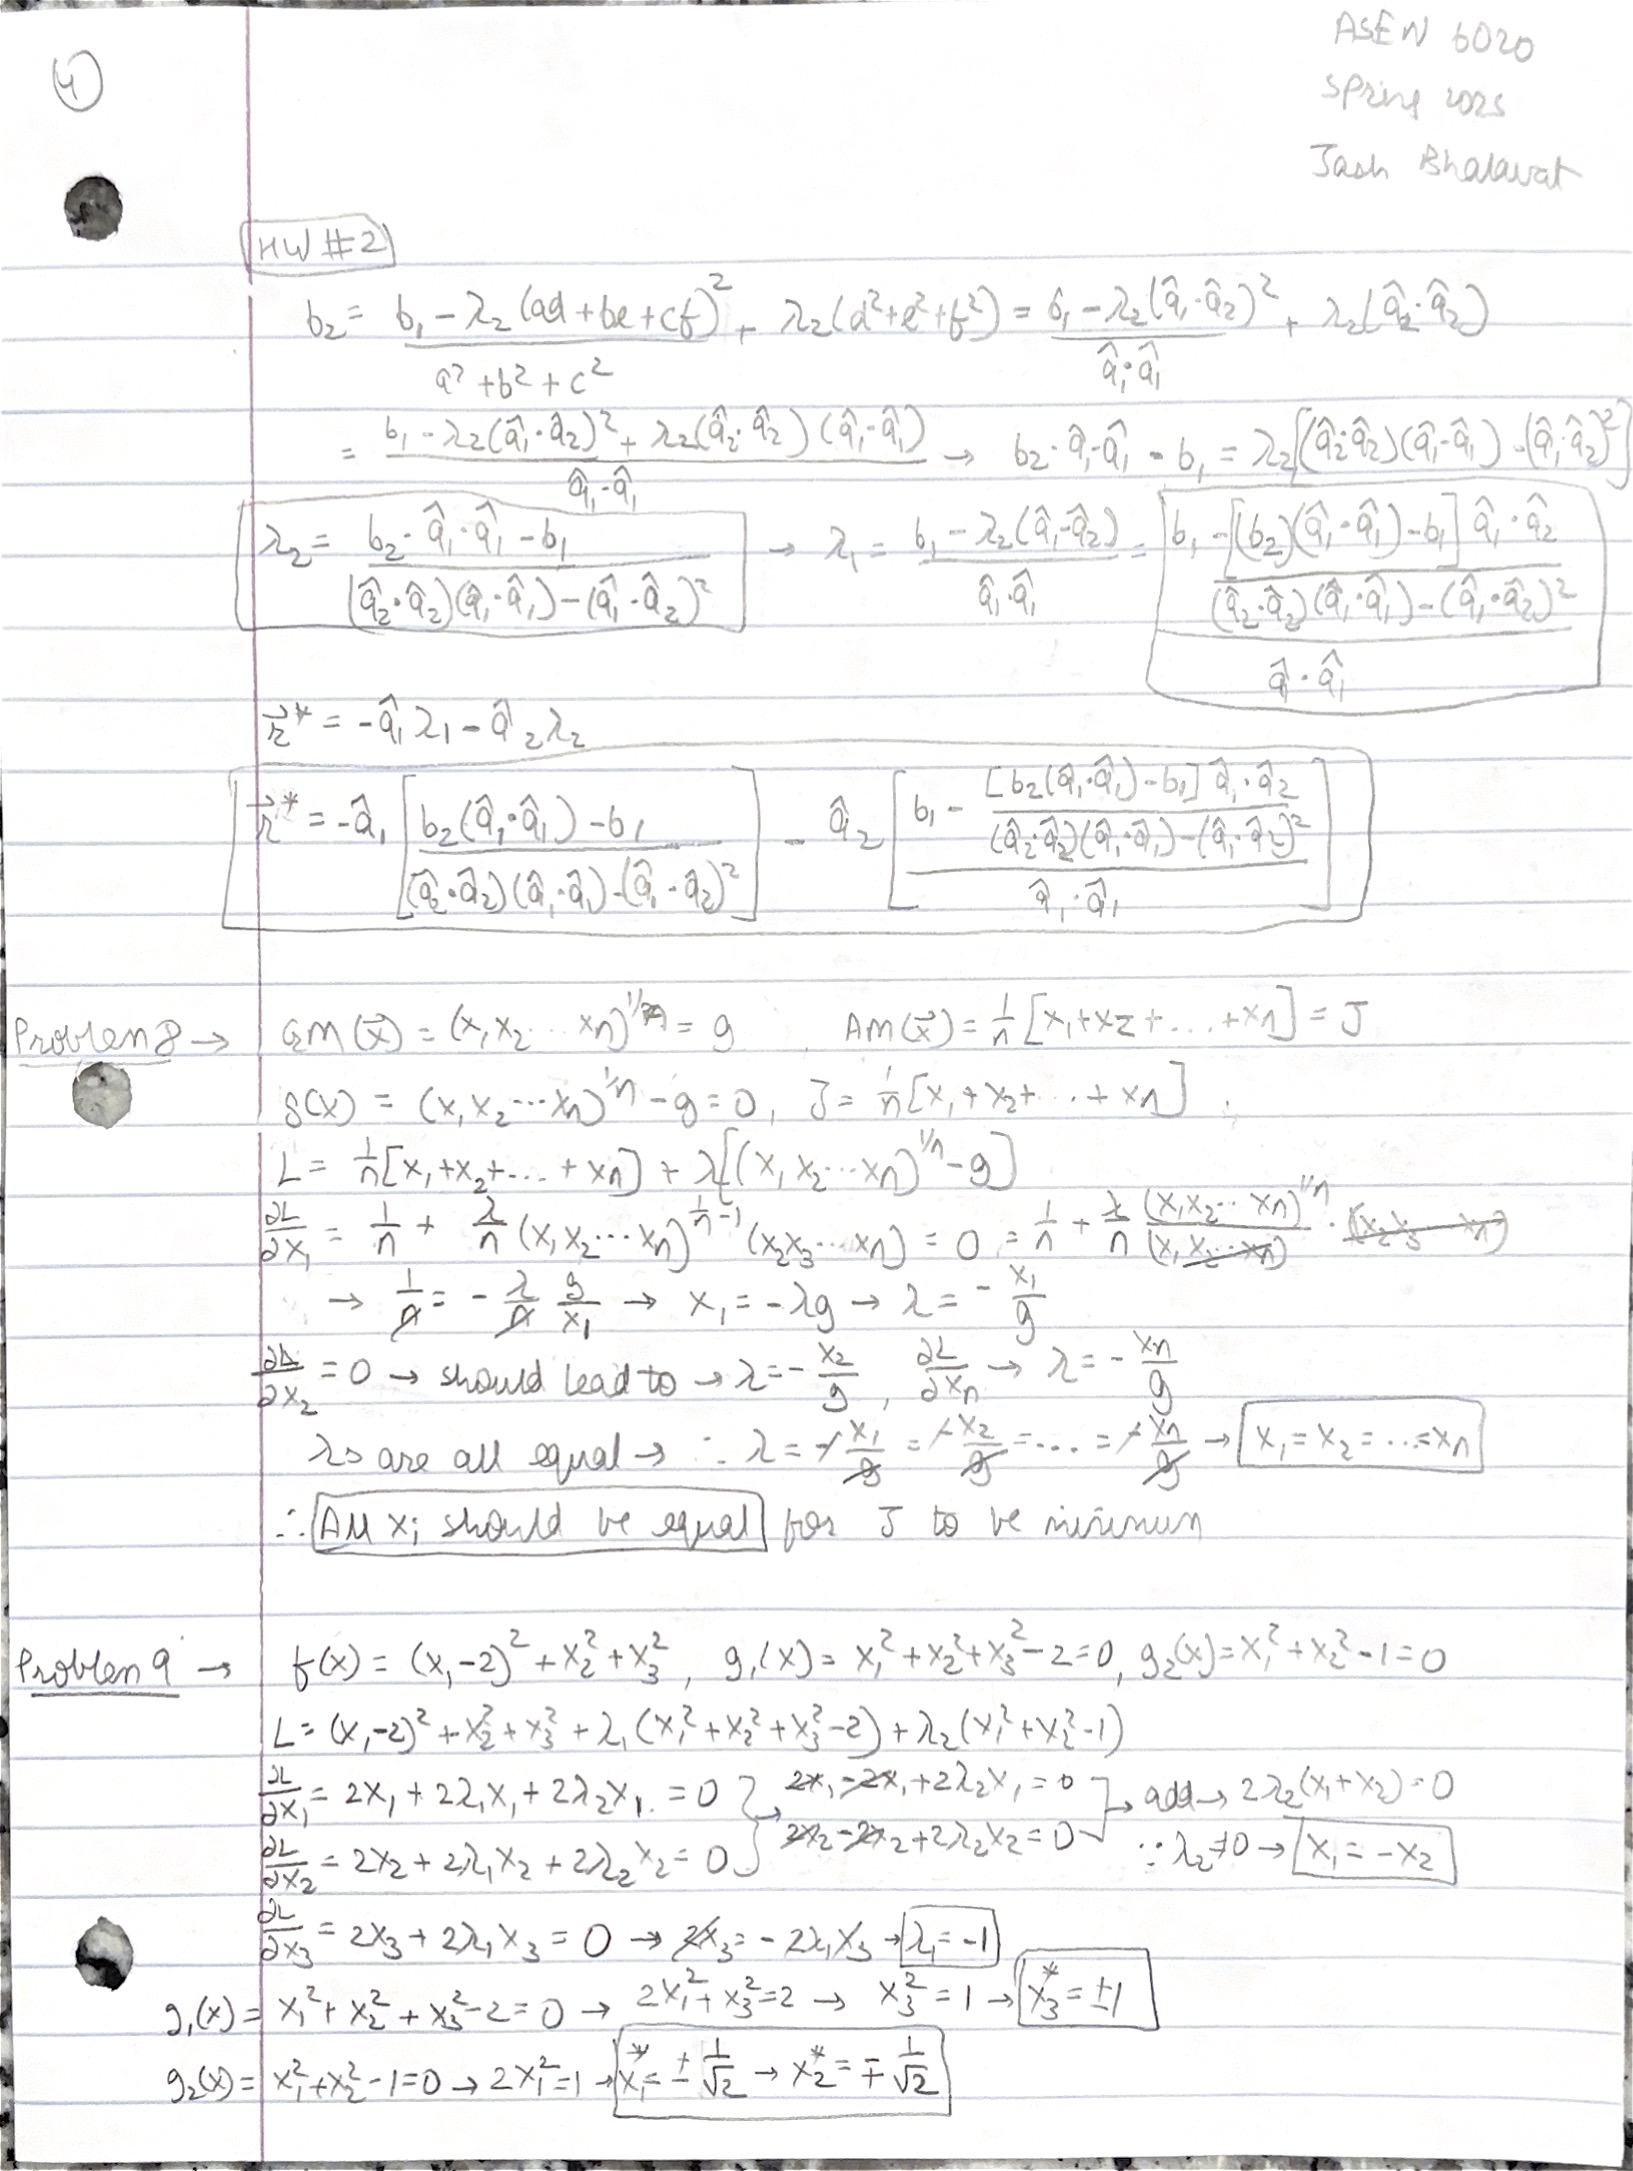 ④
ASEN 6020
Spring 2025
Jash Bhalavat
HW #2
b₂ = (b₁ - λ₂(ad + be + cf)²)/(a² + b² + c²) + λ₂(d² + e² + f²) = (b₁ - λ₂(â₁·â₂)²)/(â₁·â₁) + λ₂(â₂·â₂)
= (b₁ - λ₂(â₁·â₂)² + λ₂(â₂·â₂)(â₁·â₁))/(â₁·â₁) → b₂·â₁·â₁ - b₁ = λ₂[(â₂·â₂)(â₁·â₁) - (â₁·â₂)²]
λ₂ = (b₂·â₁·â₁ - b₁)/((â₂·â₂)(â₁·â₁) - (â₁·â₂)²) → λ₁ = (b₁ - λ₂(â₁·â₂))/(â₁·â₁) = (b₁ - ([(b₂)(â₁·â₁) - b₁] â₁·â₂)/((â₂·â₂)(â₁·â₁) - (â₁·â₂)²))/(â₁·â₁)
r⃗* = -â₁λ₁ - â₂λ₂
r⃗* = -â₁ [(b₂(â₁·â₁) - b₁)/((â₂·â₂)(â₁·â₁) - (â₁·â₂)²)] - â₂ [(b₁ - ([b₂(â₁·â₁) - b₁] â₁·â₂)/((â₂·â₂)(â₁·â₁) - (â₁·â₂)²))/(â₁·â₁)]
Problem 8 → GM(x⃗) = (x₁x₂...xn)^(1/n) = g AM(x⃗) = 1/n [x₁ + x₂ + ... + xn] = J
g(x) = (x₁x₂...xn)^(1/n) - g = 0, J = 1/n [x₁ + x₂ + ... + xn]
L = 1/n [x₁ + x₂ + ... + xn] + λ[(x₁x₂...xn)^(1/n) - g]
∂L/∂x₁ = 1/n + λ/n (x₁x₂...xn)^(1/n - 1) (x₂x₃...xn) = 0 = 1/n + λ/n (x₁x₂...xn)^(1/n)/(x₁x₂...xn) · (x₂x₃...xn)
→ 1/n = -λ/n g/x₁ → x₁ = -λg → λ = -x₁/g
∂L/∂x₂ = 0 → should lead to → λ = -x₂/g, ∂L/∂xn → λ = -xn/g
λs are all equal → ∴ λ = -x₁/g = -x₂/g = ... = -xn/g → x₁ = x₂ = ... = xn
∴ All xᵢ should be equal for J to be minimum
Problem 9 → f(x) = (x₁-2)² + x₂² + x₃², g₁(x) = x₁² + x₂² + x₃² - 2 = 0, g₂(x) = x₁² + x₂² - 1 = 0
L = (x₁-2)² + x₂² + x₃² + λ₁(x₁² + x₂² + x₃² - 2) + λ₂(x₁² + x₂² - 1)
∂L/∂x₁ = 2x₁ + 2λ₁x₁ + 2λ₂x₁ = 0 } → 2x₁ - 2x₁ + 2λ₂x₁ = 0 ] → add → 2λ₂(x₁ + x₂) = 0
∂L/∂x₂ = 2x₂ + 2λ₁x₂ + 2λ₂x₂ = 0 } 2x₂ - 2x₂ + 2λ₂x₂ = 0 ] ∵ λ₂ ≠ 0 → x₁ = -x₂
∂L/∂x₃ = 2x₃ + 2λ₁x₃ = 0 → 2x₃ = -2λ₁x₃ → λ₁ = -1
g₁(x) = x₁² + x₂² + x₃² - 2 = 0 → 2x₁² + x₃² = 2 → x₃² = 1 → x₃* = ±1
g₂(x) = x₁² + x₂² - 1 = 0 → 2x₁² = 1 → x₁* = ± 1/√2 → x₂* = ∓ 1/√2